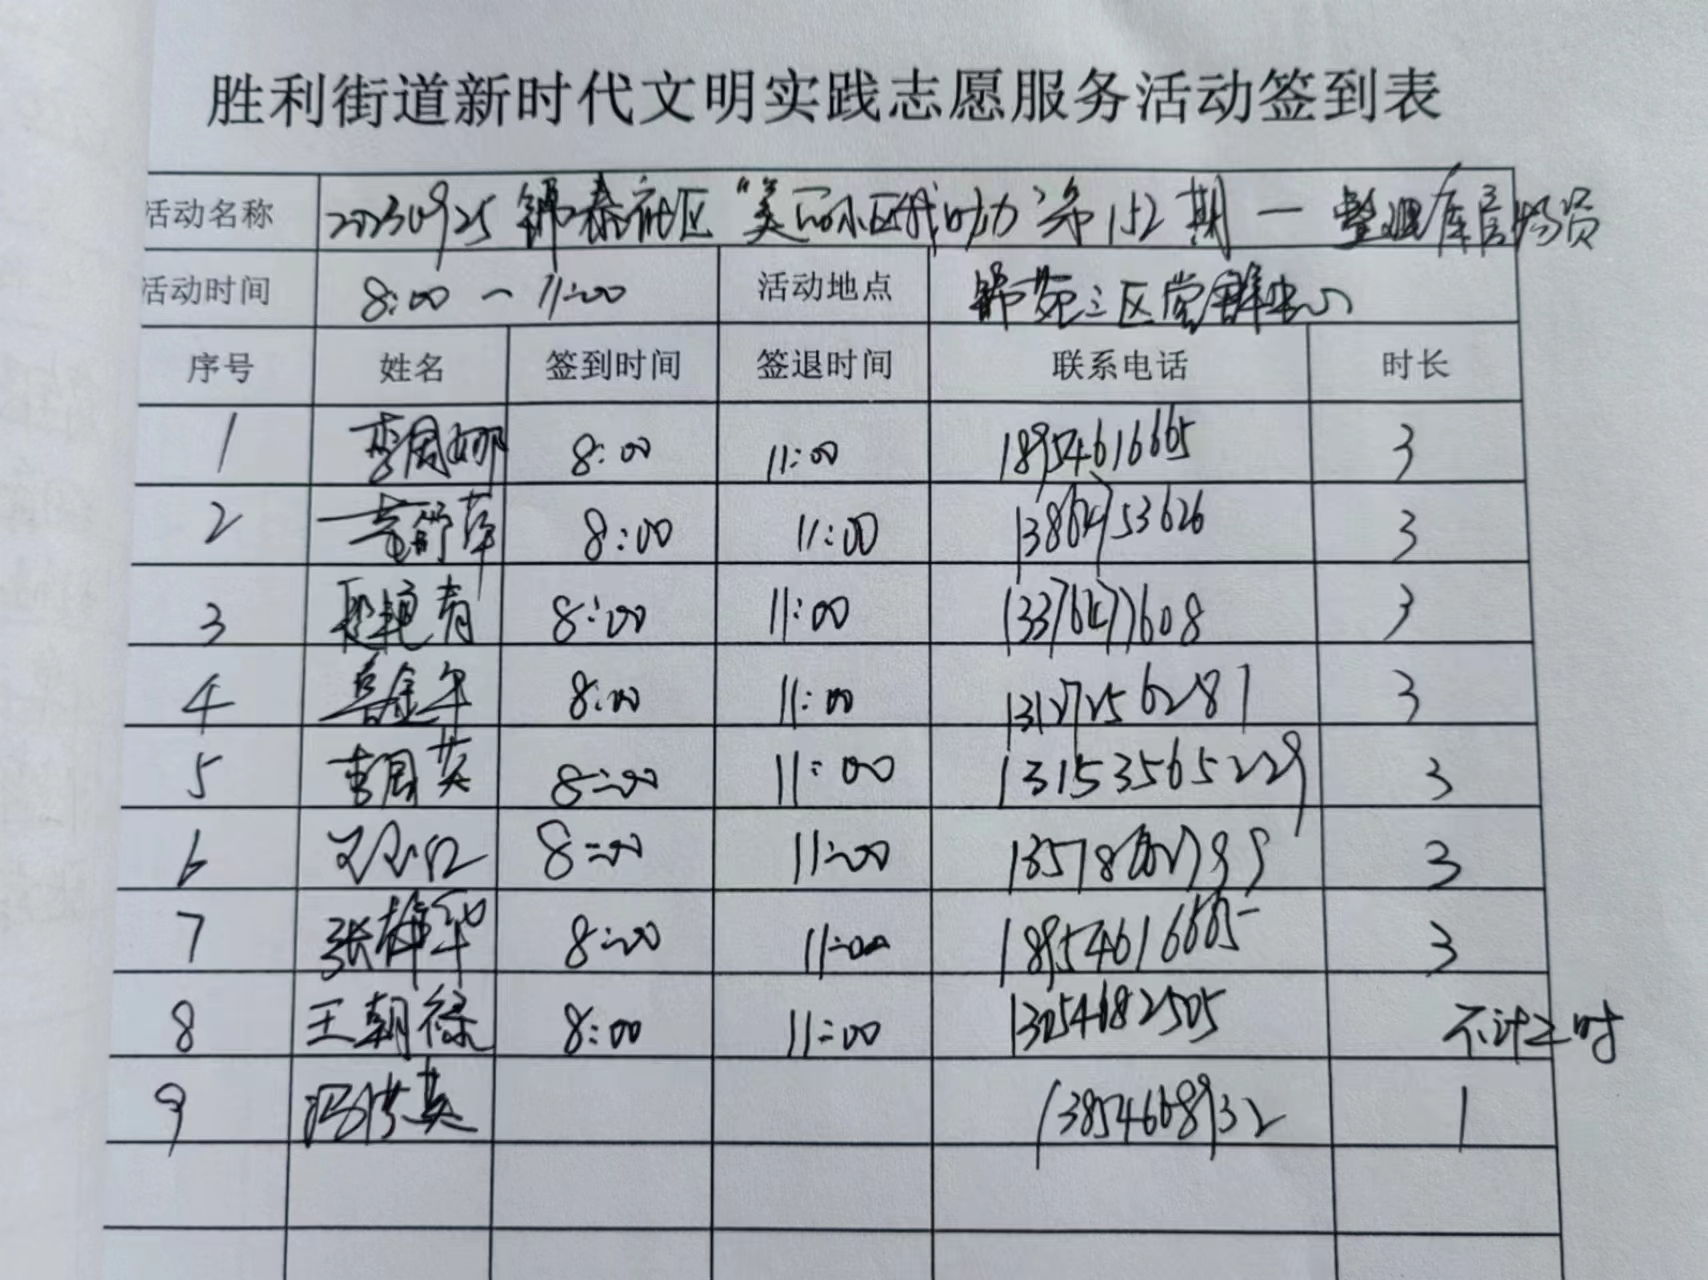 胜利街道新时代文明实践志愿服务活动签到表
活动名称 20230925 锦泰社区“美丽小区我助力”第152期一整理库房物资
活动时间 8:00-11:00 活动地点 锦苑三区党群中心
序号 姓名 签到时间 签退时间 联系电话 时长
1 李周娜 8:00 11:00 18954616665 3
2 8:00 11:00 3
3 艳青 8:00 11:00 3
4 金年 8:00 11:00 3
5 李周英 8:00 11:00 13153565229 3
6 8:00 11:00 3
7 张梅华 8:00 11:00 18954616665 3
8 王朝禄 8:00 11:00 不计工时
9 冯洪英 13854668932 1